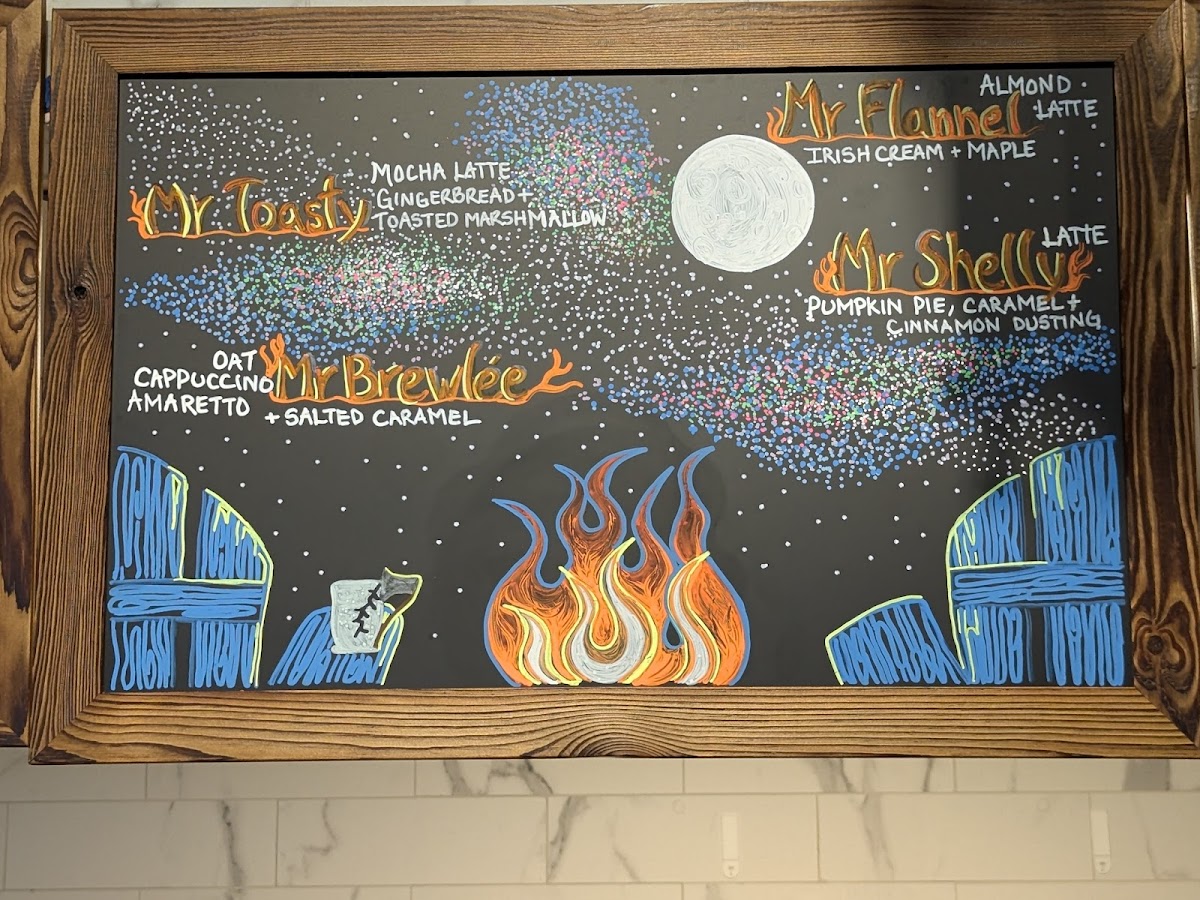 Mr Toasty
MOCHA LATTE
GINGERBREAD +
TOASTED MARSHMALLOW
Mr Flannel
ALMOND
LATTE
IRISH CREAM + MAPLE
Mr Shelly
LATTE
PUMPKIN PIE, CARAMEL +
CINNAMON DUSTING
Mr Brewlée
OAT
CAPPUCCINO
AMARETTO
+ SALTED CARAMEL